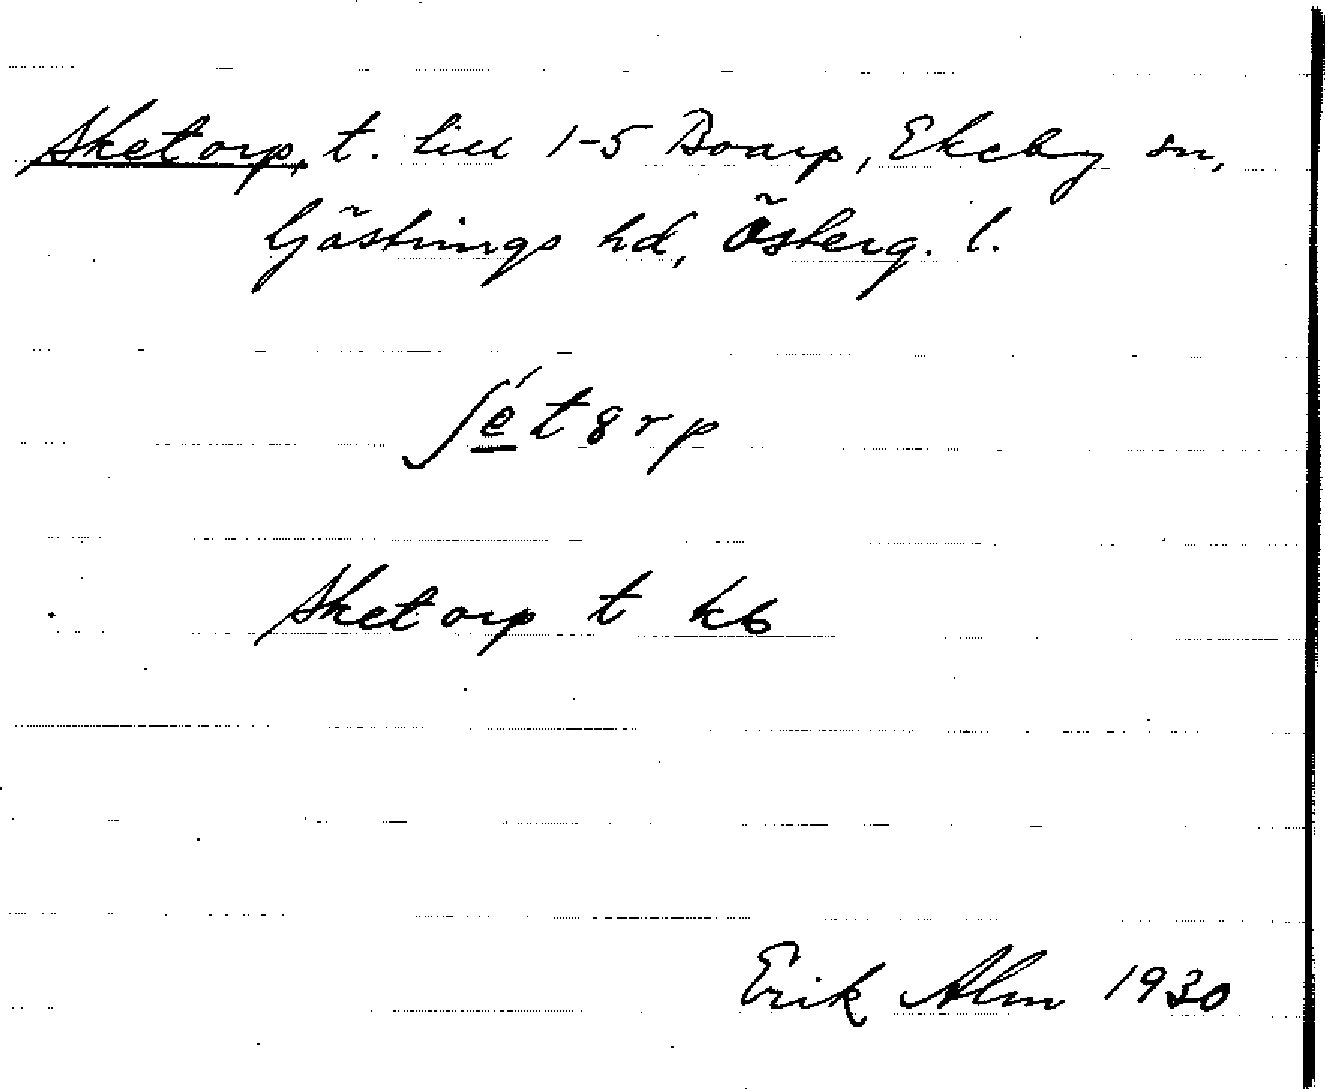 Sketorp, t. till 1-5 Boarp, Ekeby sn,
Göstrings hd, Österg. l.
ʃé̲t8rp
Sketorp t kb
Erik Alm 1930